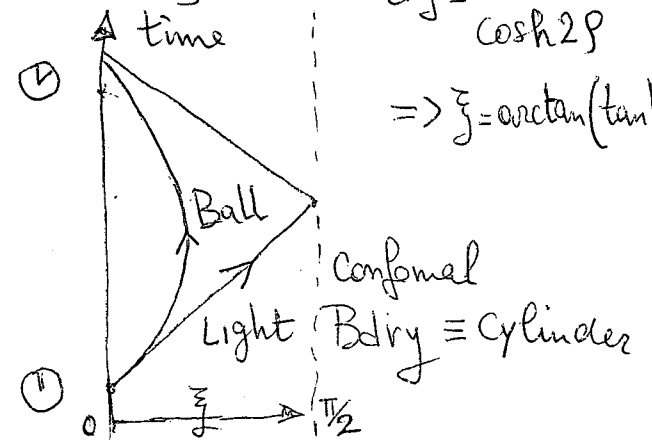 time
cosh2ρ
=> ξ=arctan(tan
Ball
Confomal
Light Bdry ≡ Cylinder
0 ξ π/2